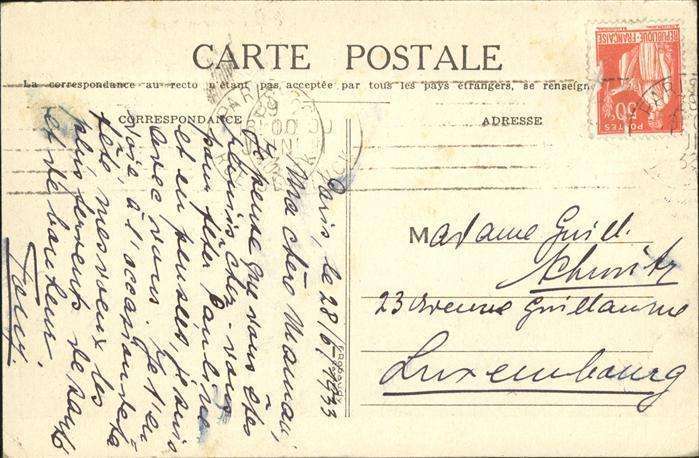 CARTE POSTALE
La correspondance au recto n'étant pas acceptée par tous les pays étrangers, se renseign
CORRESPONDANCE
ADRESSE
RÉPUBLIQUE FRANÇAISE
POSTES
50
PARIS
Paris, le 28/6/1933
Ma chère Maman,
Je pense que vous êtes
réunis chez vous
pour fêter Pauline
et en pensées je suis
avec vous. Je t'en
voie à l'occasion de ta
fête, mes voeux les
plus fervents de santé
et de bonheur.
Tony.
Madame Guill.
Schmitz
23 Avenue Guillaume
Luxembourg